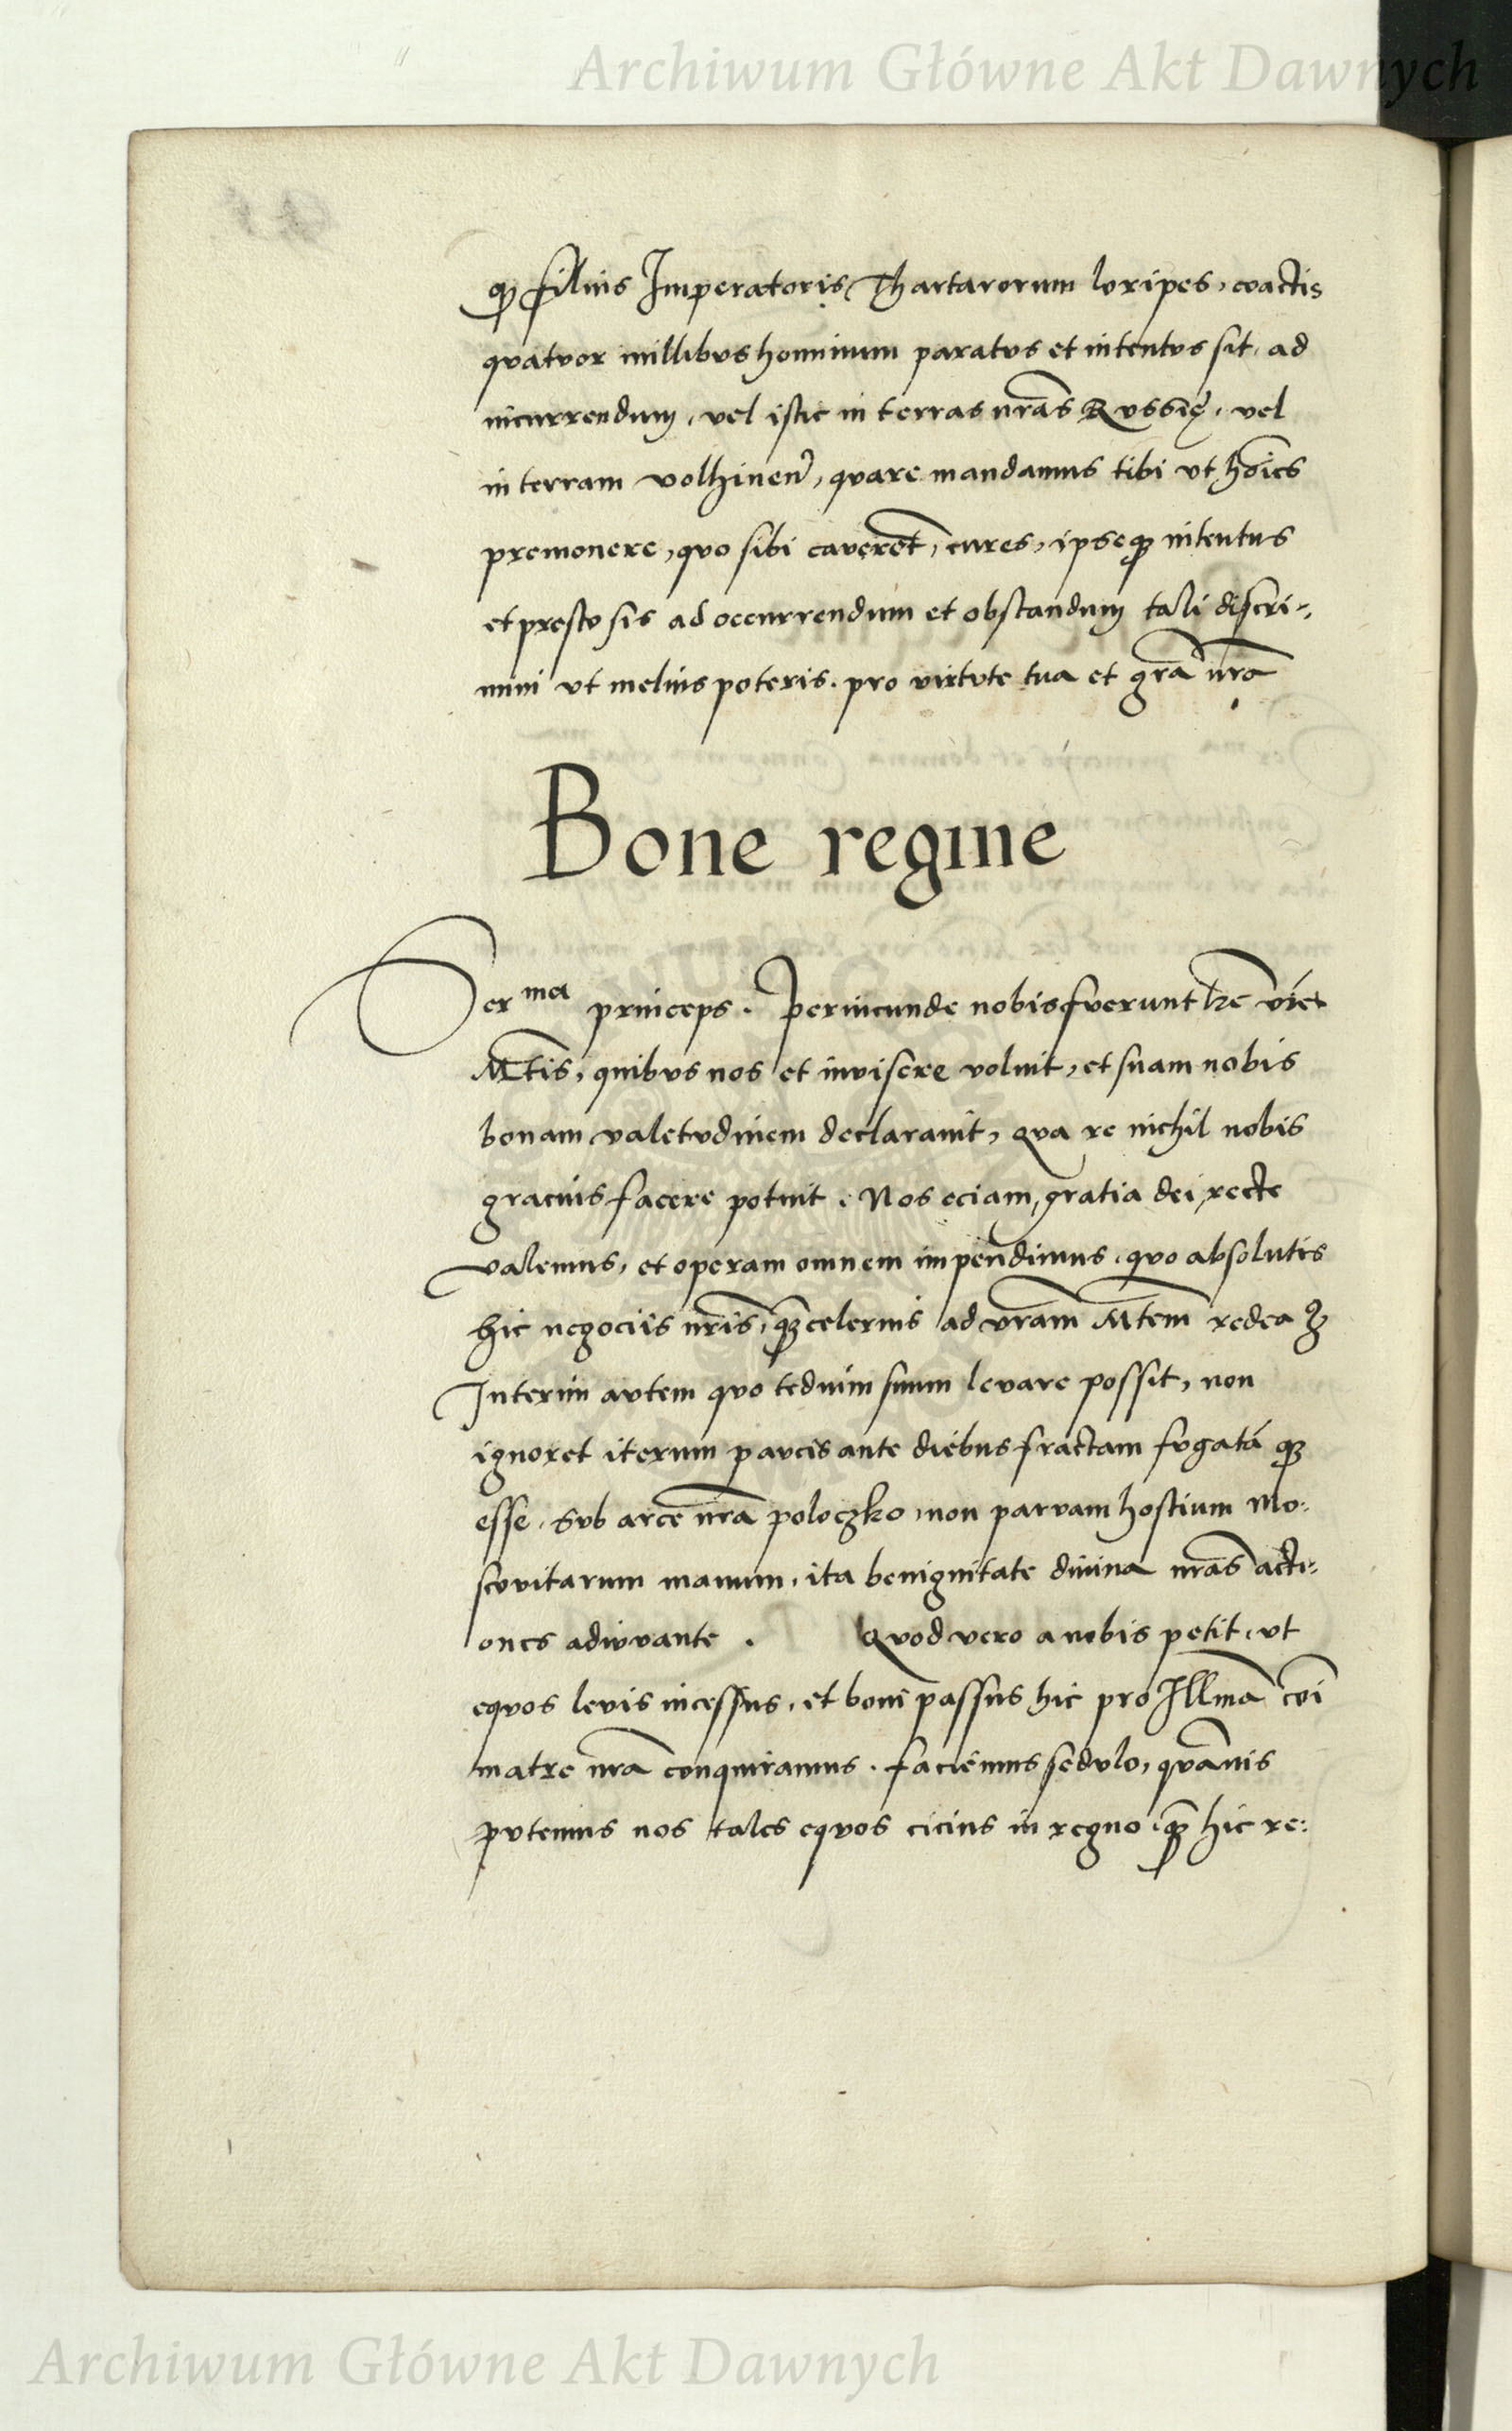 Archiwum Główne Akt Dawnych
ꝙ filius Imperatoris Thartarorum loripes, coactis
quatuor millibus hominum paratus et intentus sit, ad
incurrendum, vel istic in terras nrãs Russię, vel
in terram volhinen̄, quare mandamus tibi vt hoı̄es
premonere, quo sibi caverēt, cures, ipseqꝫ intentus
et presto sis ad occurrendum et obstandum tali discri-
mini vt melius poteris. pro virtute tua et grã nrã
Bone regine
Serᵐᵃ princeps. Periucunde nobis fuerunt lrẽ vrẽ
Mtĩs, quibus nos et invisere voluit, et suam nobis
bonam valetudinem declaravit, qua re nichil nobis
gracius facere potuit. Nos eciam, gratia dei, recte
valemus, et operam omnem impendimus, quo absolutis
hic negociis nrĩs, qꝫ celerius ad vrãm Mtẽm redeaꝫ
Interim autem quo tedium suum levare possit, non
ignoret iterum paucis ante diebus fractam fugatã qꝫ
esse, Sub arce nrã poloczko, non parvam hostium Mo-
scovitarum manum, ita benignitate divina nrãs acti-
ones adiuvante. Quod vero a nobis petit, vt
equos levis incessus, et boni passus hic pro Illmã cõi
matre nrã conquiramus. faciemus sedulo, quãvis
putemus nos tales equos cicius in regno, qꝫ̃ hic re:
Archiwum Główne Akt Dawnych